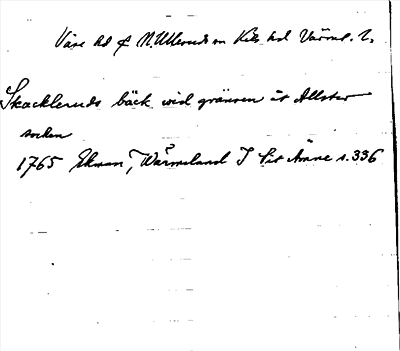 Väse hd & N. Ulleruds sn Kils hd Värml. l.
Skackleruds bäck wid gränsen åt Allster
socken
1765 Ekman, Wärmeland I Sit Ämne s. 336